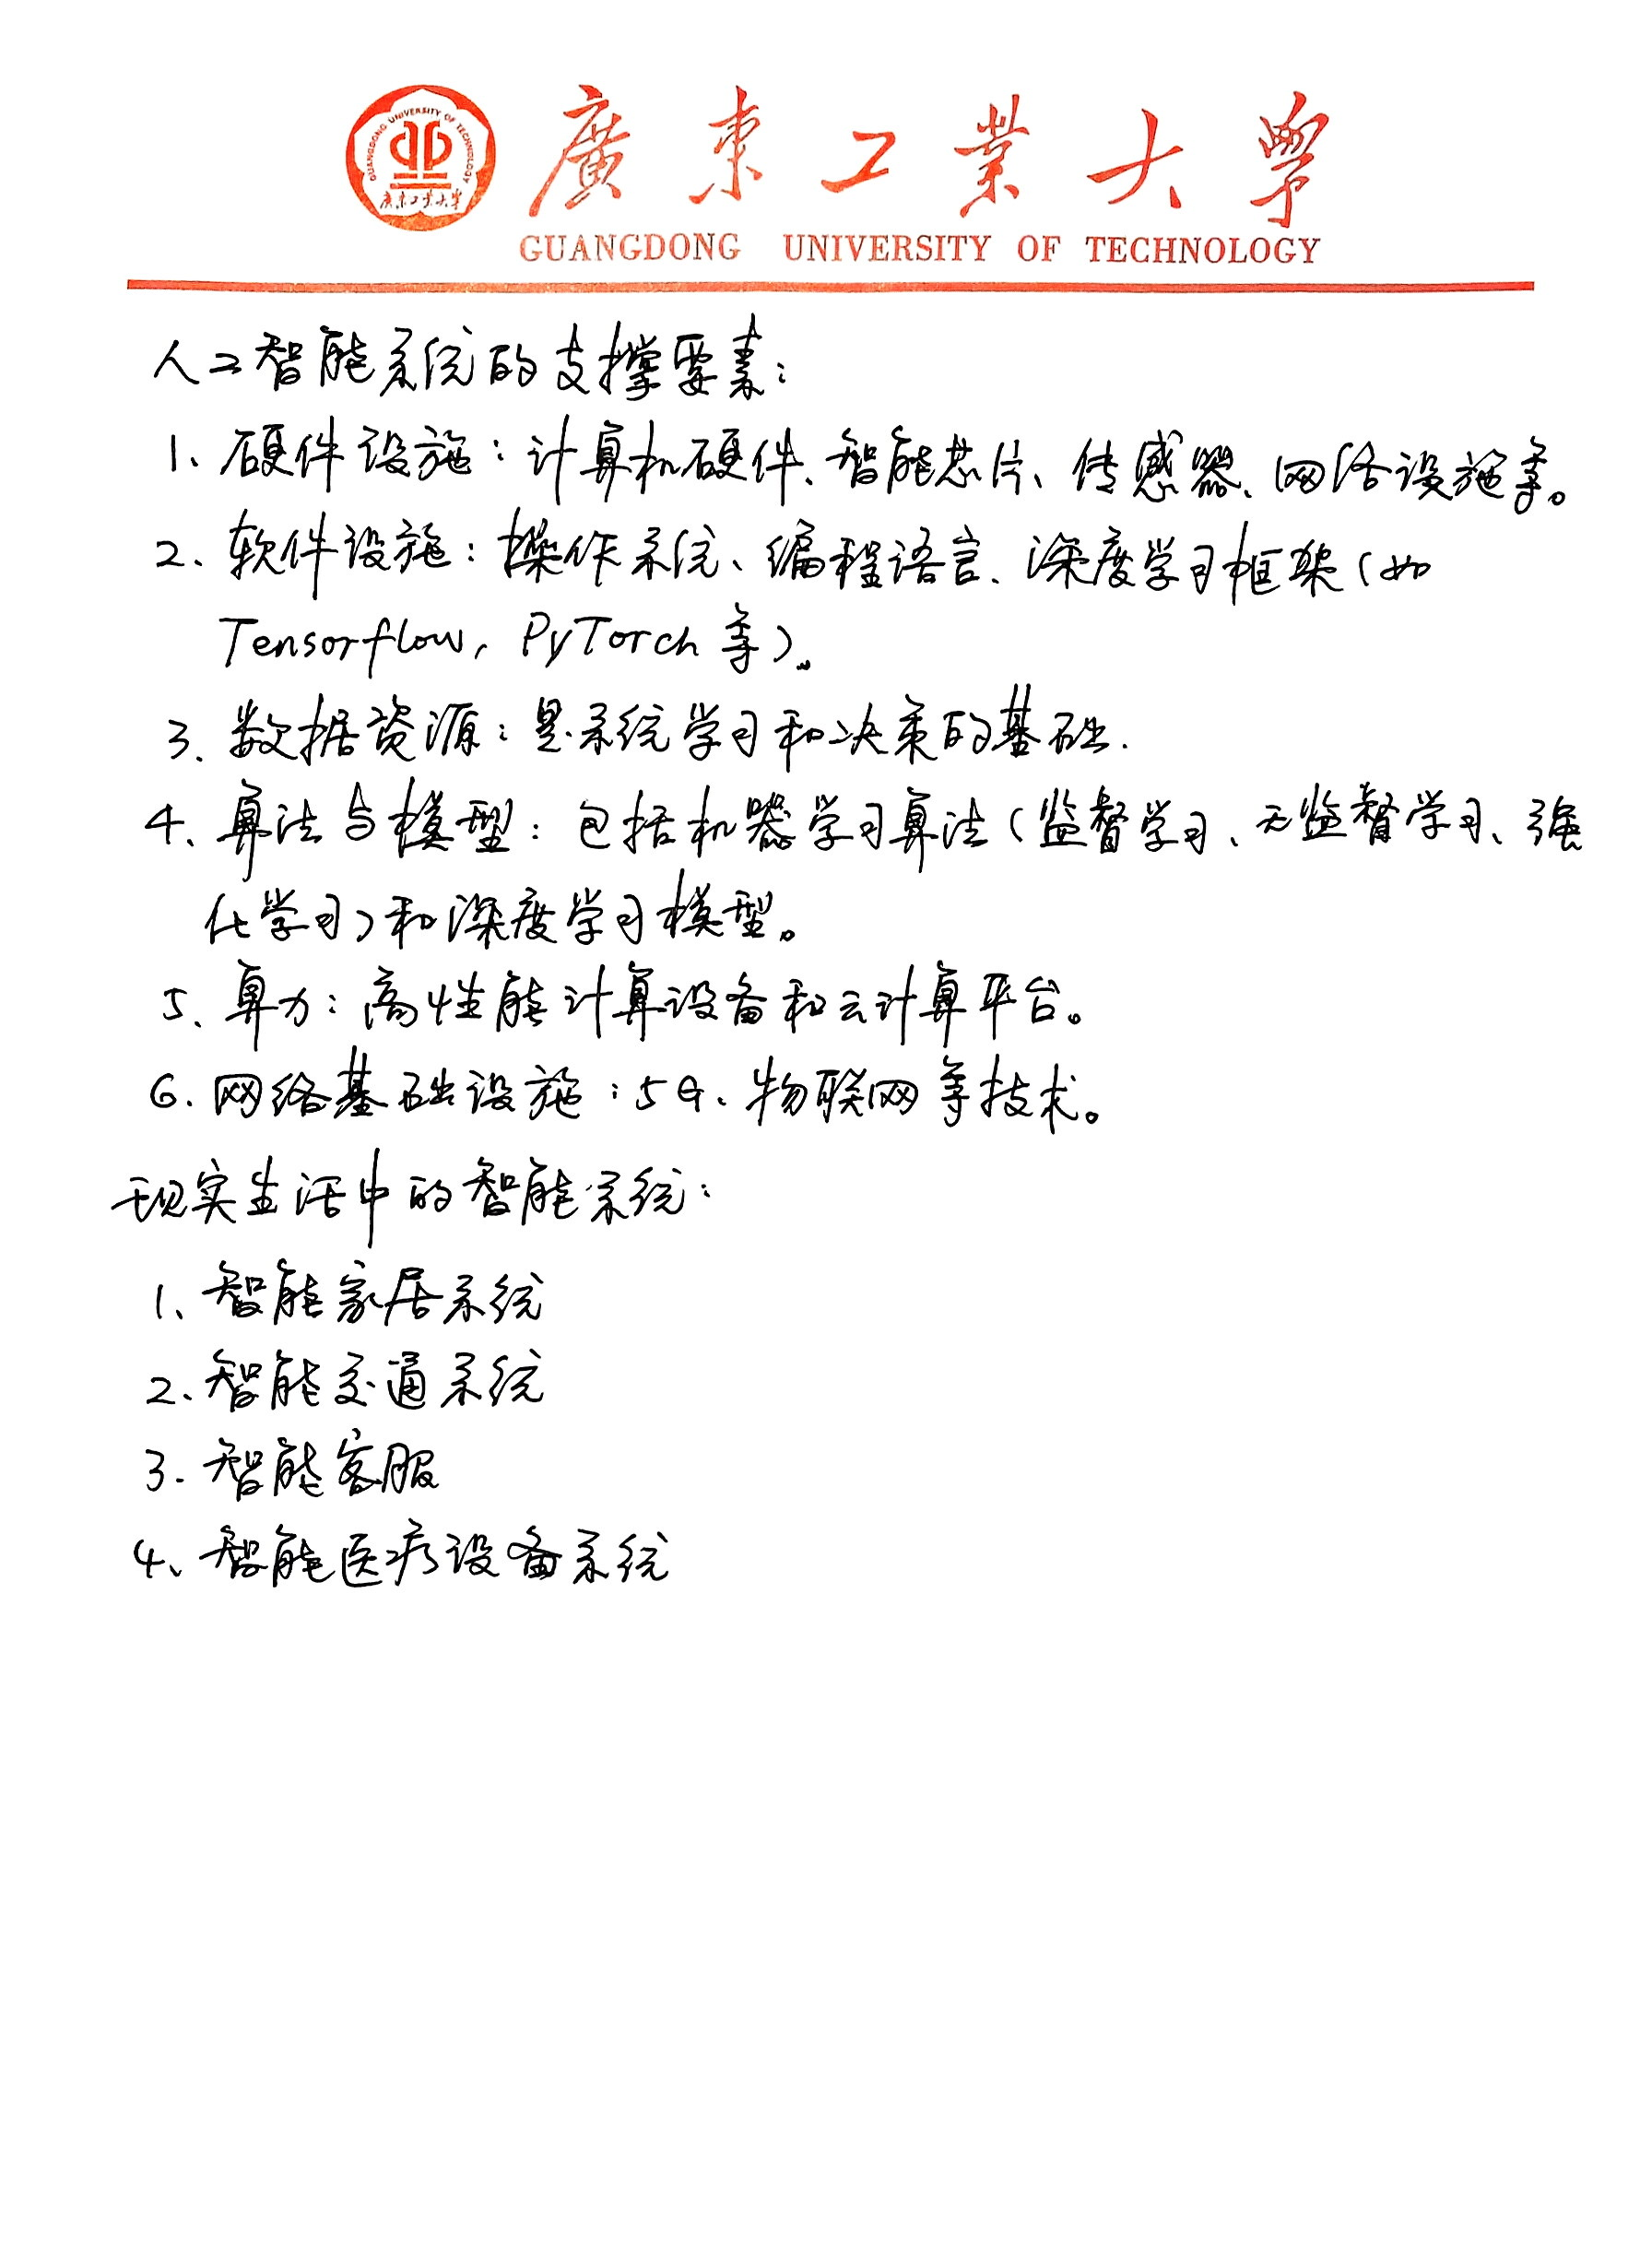 GUANGDONG UNIVERSITY OF TECHNOLOGY
广东工业大学
廣東工業大學
GUANGDONG UNIVERSITY OF TECHNOLOGY
人工智能系统的支撑要素：
1、硬件设施：计算机硬件、智能芯片、传感器、网络设施等。
2、软件设施：操作系统、编程语言、深度学习框架（如
Tensorflow, PyTorch等）。
3、数据资源：是系统学习和决策的基础.
4、算法与模型：包括机器学习算法（监督学习、无监督学习、强
化学习）和深度学习模型。
5、算力：高性能计算设备和云计算平台。
6、网络基础设施：5G、物联网等技术。
现实生活中的智能系统：
1、智能家居系统
2、智能交通系统
3. 智能客服
4、智能医疗设备系统